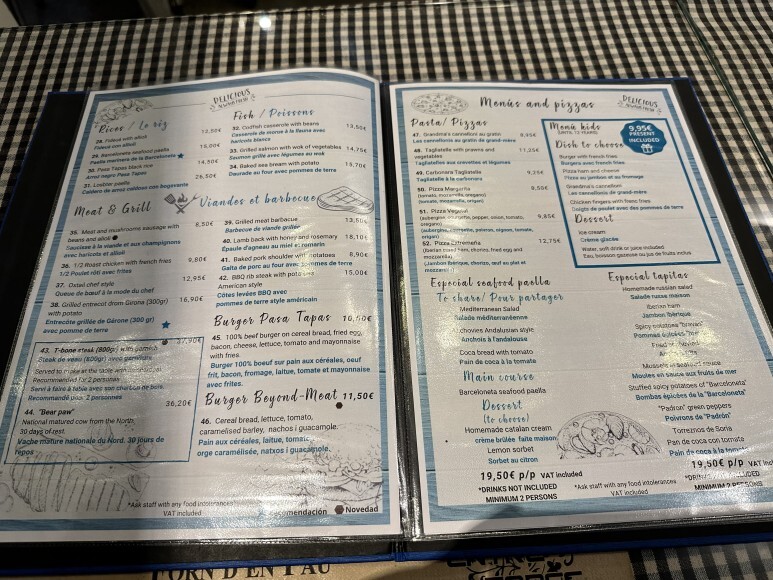 DELICIOUS
Rices / Le riz
28. Fideuà with allioli 13,50€
Fideuà con allioli
29. Barceloneta seafood paella 16,00€
Paella marinera de la Barceloneta
30. Pasa Tapas black rice 14,50€
Arroz negro Pasa Tapas
31. Lobster paella 20,50€
Caldero de arroz caldoso con bogavante
Fish / Poissons
32. Codfish casserole with beans 13,50€
Casserole de morue à la llauna avec
haricots blancs
33. Grilled salmon with wok of vegetables 14,75€
Saumon grillé avec légumes au wok
34. Baked sea bream with potato 18,70€
Daurade au four avec pommes de terre
Meat & Grill
Viandes et barbecue
35. Meat and mushrooms sausage with 8,50€
beans and alioli
Saucisse à la viande et aux champignons
avec haricots et alioli
36. 1/2 Roast chicken with french fries 9,80€
1/2 Poulet rôti avec frites
37. Oxtail chef style 12,95€
Queue de bœuf à la mode du chef
38. Grilled entrecot from Girona (300gr) 16,90€
with potato
Entrecôte grillée de Gérone (300 gr)
avec pomme de terre
43. T-bone steak (800gr) with garnish 37,90€
Steak de veau (800gr) avec garniture
Served to make at the table with
Recommended for 2 persons
Servi à faire à table avec son charbon de bois.
Recommandé pour 2 personnes
44. "Bear paw" 36,20€
National matured cow from the North.
30 days of rest.
Vache mature nationale du Nord. 30 jours de
repos
39. Grilled meat barbecue 13,50€
Barbecue de viande grillée
40. Lamb back with honey and rosemary 18,10€
Épaule d'agneau au miel et romarin
41. Baked pork shoulder with potatoes 8,90€
Galta de porc au four avec pommes de terre
42. BBQ rib steak with potatoes 15,00€
American style
Côtes levées BBQ avec
pommes de terre style américain
Burger Pasa Tapas 10,50€
45. 100% beef burger on cereal bread, fried egg,
bacon, cheese, lettuce, tomato and mayonnaise
with fries.
Burger 100% boeuf sur pain aux céréales, oeuf
frit, bacon, fromage, laitue, tomate et mayonnaise
avec frites.
Burger Beyond-Meat 11,50€
46. Cereal bread, lettuce, tomato,
caramelised barley, nachos i guacamole.
Pain aux céréales, laitue, tomate,
orge caramélisée, natxos i guacamole.
*Ask staff with any food intolerances
VAT included
Recomendación
Novedad
Menús and pizzas
DELICIOUS
Pasta / Pizzas
47. Grandma's cannelloni au gratin 8,95€
Les cannellonis au gratin de grand-mère
48. Tagliatelle with prawns and 11,25€
vegetables
Tagliatelles aux crevettes et légumes
49. Carbonara Tagliatelle 9,25€
Tagliatelle à la carbonara
50. Pizza Margarita 8,50€
(tomato, mozzarella, oregano)
(tomate, mozzarella, origan)
51. Pizza Vegetal 9,85€
(aubergine, courgette, pepper, onion, tomato,
oregano)
(aubergine, courgette, poivron, oignon, tomate,
origan)
52. Pizza Extremeña 12,75€
(Iberian ham, chorizo, fried egg and
mozzarella)
(Jambon ibérique, chorizo, œuf au plat et
mozzarella)
Menu kids
UNTIL 12 YEARS
9,95€
PRESENT
INCLUDED
Dish to choose
Burger with french fries
Burgers avec frites
Pizza ham and cheese
Pizza au jambon et au fromage
Grandma's cannelloni
Cannellonis de grand-mère
Chicken fingers with french fries
Doigts de poulet avec des pommes de terre
Dessert
Ice cream
Crème glacée
Water, soft drink or juice included
Eau, boisson gazeuse ou jus de fruits inclus
Especial seafood paella
To share / Pour partager
Mediterranean Salad
Salade méditerranéenne
Anchovies Andalusian style
Anchois à l'andalouse
Coca bread with tomato
Pain de coca à la tomate
Main course
Barceloneta seafood paella
Dessert
(to choose)
Homemade catalan cream
crème brûlée faite maison
Lemon sorbet
Sorbet au citron
19,50€ p/p VAT included
*DRINKS NOT INCLUDED
MINIMUM 2 PERSONS
*Ask staff with any food intolerances
VAT included
Especial tapitas
Homemade russian salad
Salade russe maison
Iberian ham
Jambon ibérique
Spicy potatoes "bravas"
Pommes épicées "bravas"
Mussels in seafood sauce
Moules en sauce aux fruits de mer
Stuffed spicy potatoes of "Barceloneta"
Bombas épicées de la "Barceloneta"
"Padron" green peppers
Poivrons de "Padrón"
Torreznos de Soria
Pan de coca con tomate
Pain de coca à la tomate
19,50€ p/p VAT included
*DRINKS
MINIMUM 2 PERSONS
FORN D'EN PAU